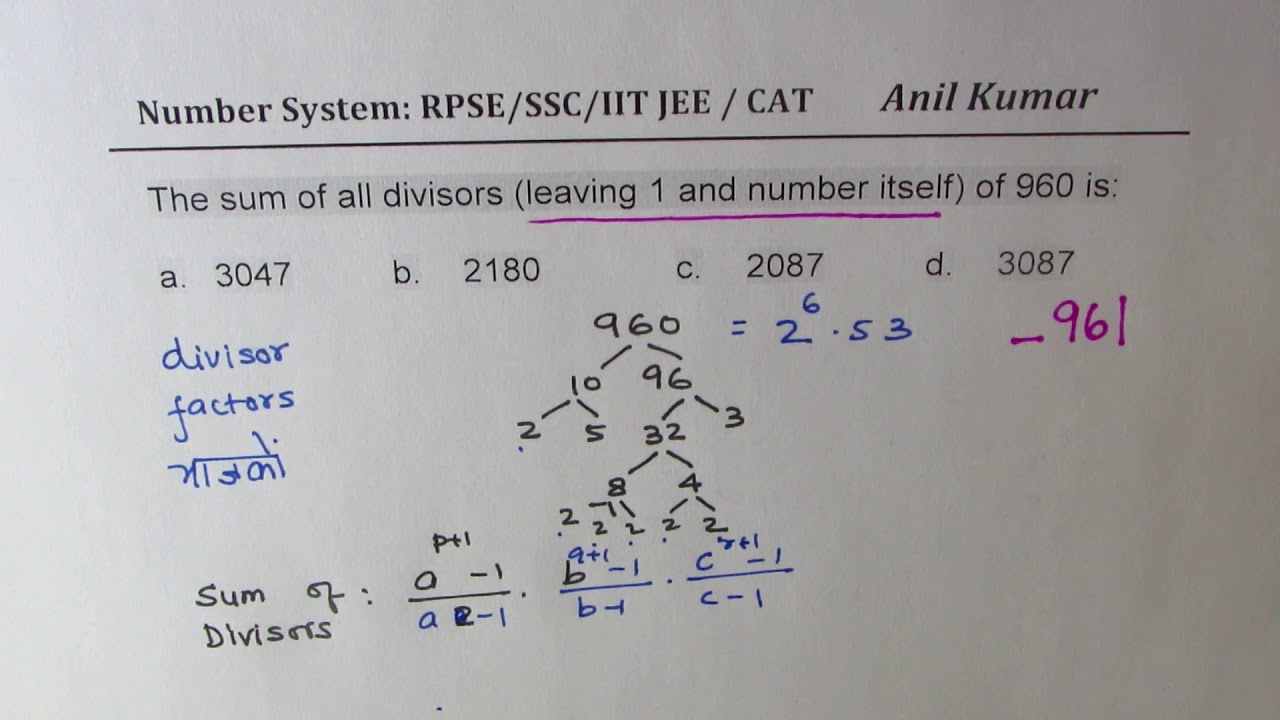 Number System: RPSE/SSC/IIT JEE / CAT Anil Kumar
The sum of all divisors (leaving 1 and number itself) of 960 is:
a. 3047 b. 2180 c. 2087 d. 3087
960 = 2⁶ · 5 3 – 961
divisor
10 96
factors
2 5 32 3
भाजकों
8 4
2 2 2 2 2
Sum of : a^(p+1) - 1 / a - 1 · b^(q+1) - 1 / b - 1 · c^(r+1) - 1 / c - 1
Divisors